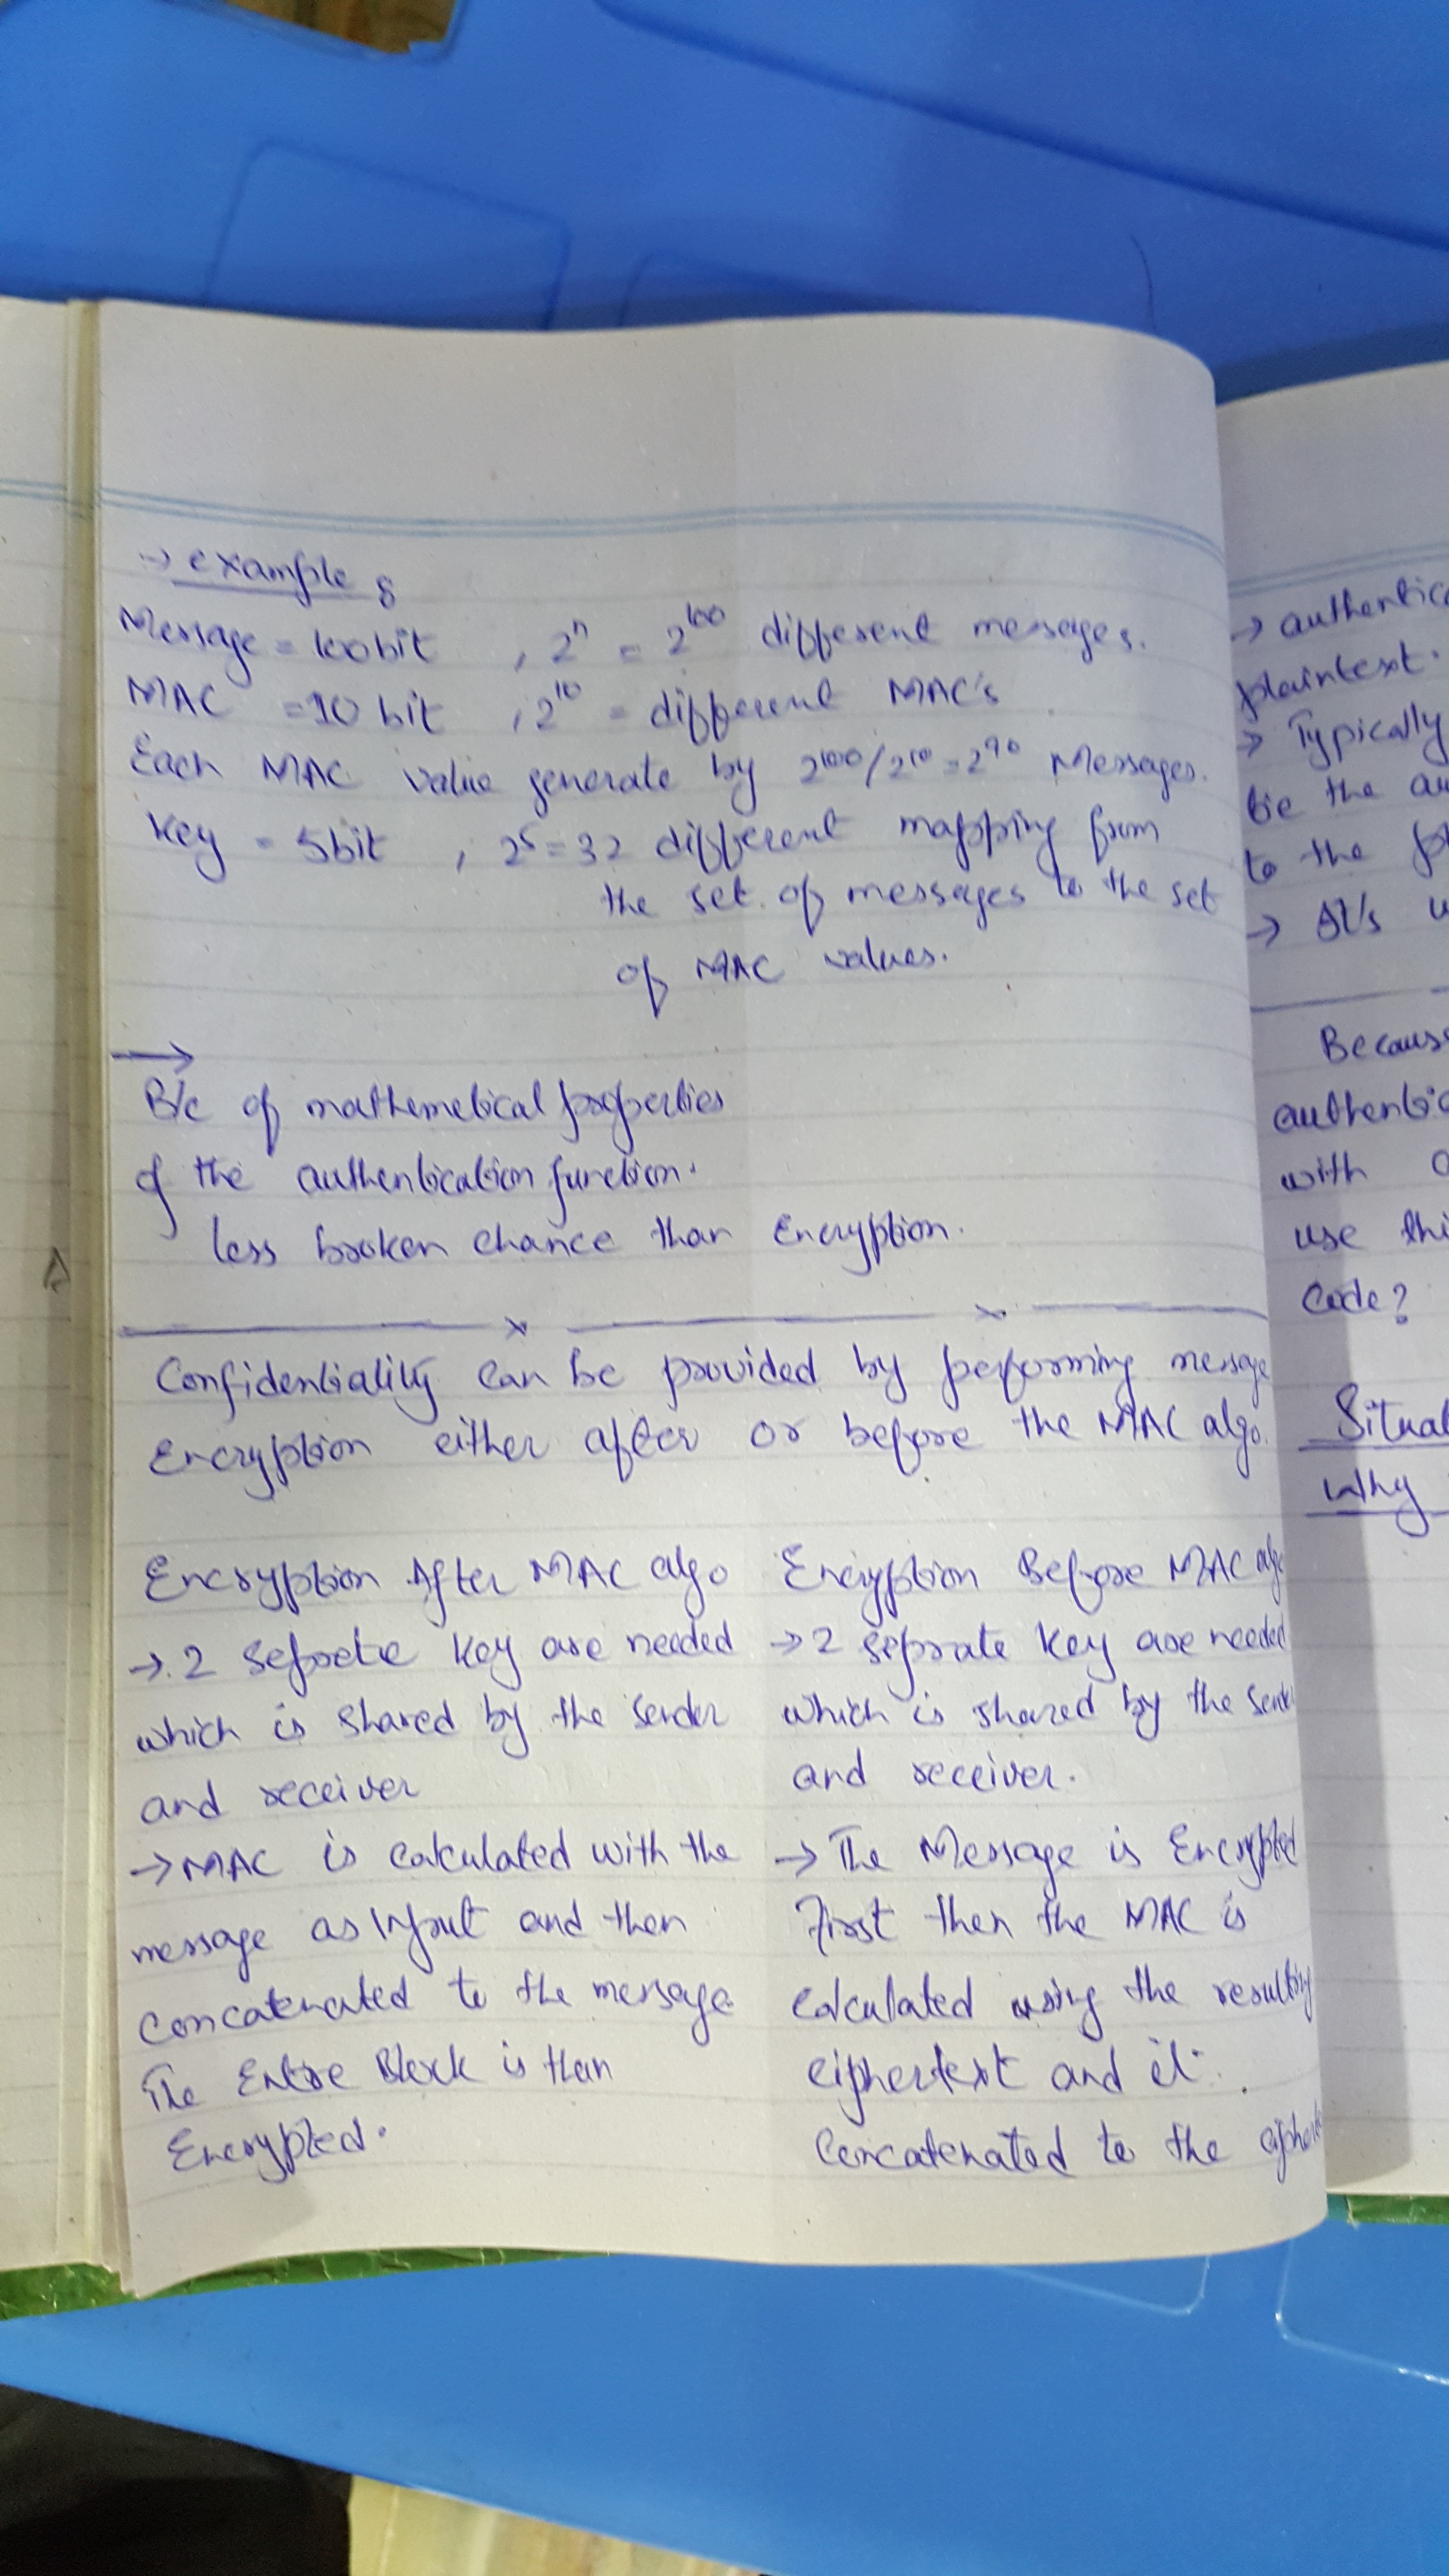 → example :
Message = 100bit , 2^n = 2^100 different messages.
MAC = 10 bit , 2^10 = different MAC's
Each MAC value generate by 2^100/2^10 = 2^90 Messages.
Key = 5bit , 2^5 = 32 different mapping from
the set of messages to the set
of MAC values.
→
B/c of mathemetical properties
of the authentication function.
less broken chance than Encryption.
Confidentiality can be provided by performing message
Encryption either after or before the MAC algo.
Encryption After MAC algo
→ 2 seprete key are needed
which is shared by the sender
and receiver
→ MAC is calculated with the
message as Input and then
concatenated to the message
The Entire Block is then
Encrypted.
Encryption Before MAC algo
→ 2 seprate key are needed
which is shared by the sender
and receiver.
→ The Message is Encrypted
First then the MAC is
calculated using the resulting
ciphertext and it
Concatenated to the
→ authentic
plaintext.
→ Typically
be the au
to the
→
Because
authentic
with
use thi
Code?
Situat
Why